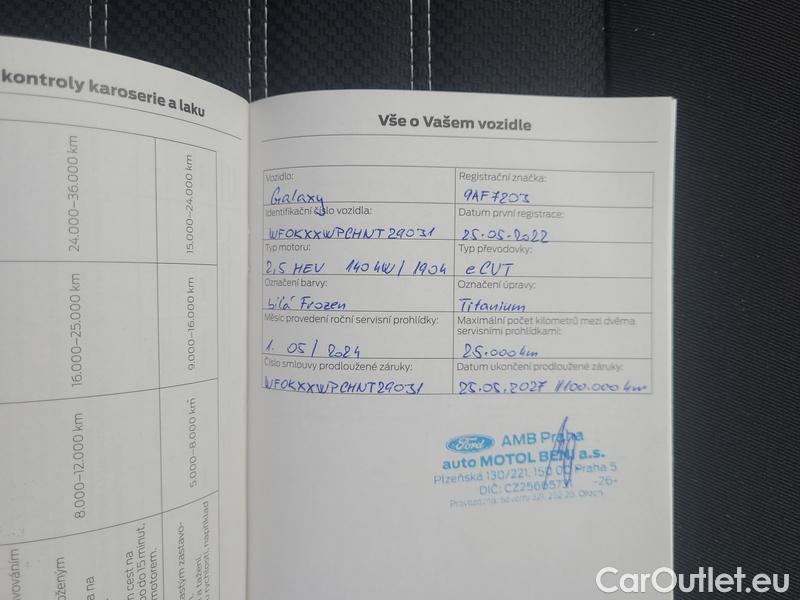 kontroly karoserie a laku
24.000–36.000 km
15.000–24.000 km
16.000–25.000 km
9.000–16.000 km
8.000–12.000 km
5.000–8.000 km
Vše o Vašem vozidle
Vozidlo:
Galaxy
Registrační značka:
9AF7203
Identifikační číslo vozidla:
WF0KXXWPCHNT29031
Datum první registrace:
25.05.2022
Typ motoru:
2,5 HEV 140kW/190k
Typ převodovky:
eCVT
Označení barvy:
bílá Frozen
Označení úpravy:
Titanium
Měsíc provedení roční servisní prohlídky:
1. 05/2024
Maximální počet kilometrů mezi dvěma
servisními prohlídkami:
25.000km
Číslo smlouvy prodloužené záruky:
WF0KXXWPCHNT29031
Datum ukončení prodloužené záruky:
25.05.2027 /100.000km
Ford
AMB Praha
auto MOTOL BENI a.s.
Plzeňská 130/221, 150 00 Praha 5
DIČ: CZ25665731 -26-
CarOutlet.eu